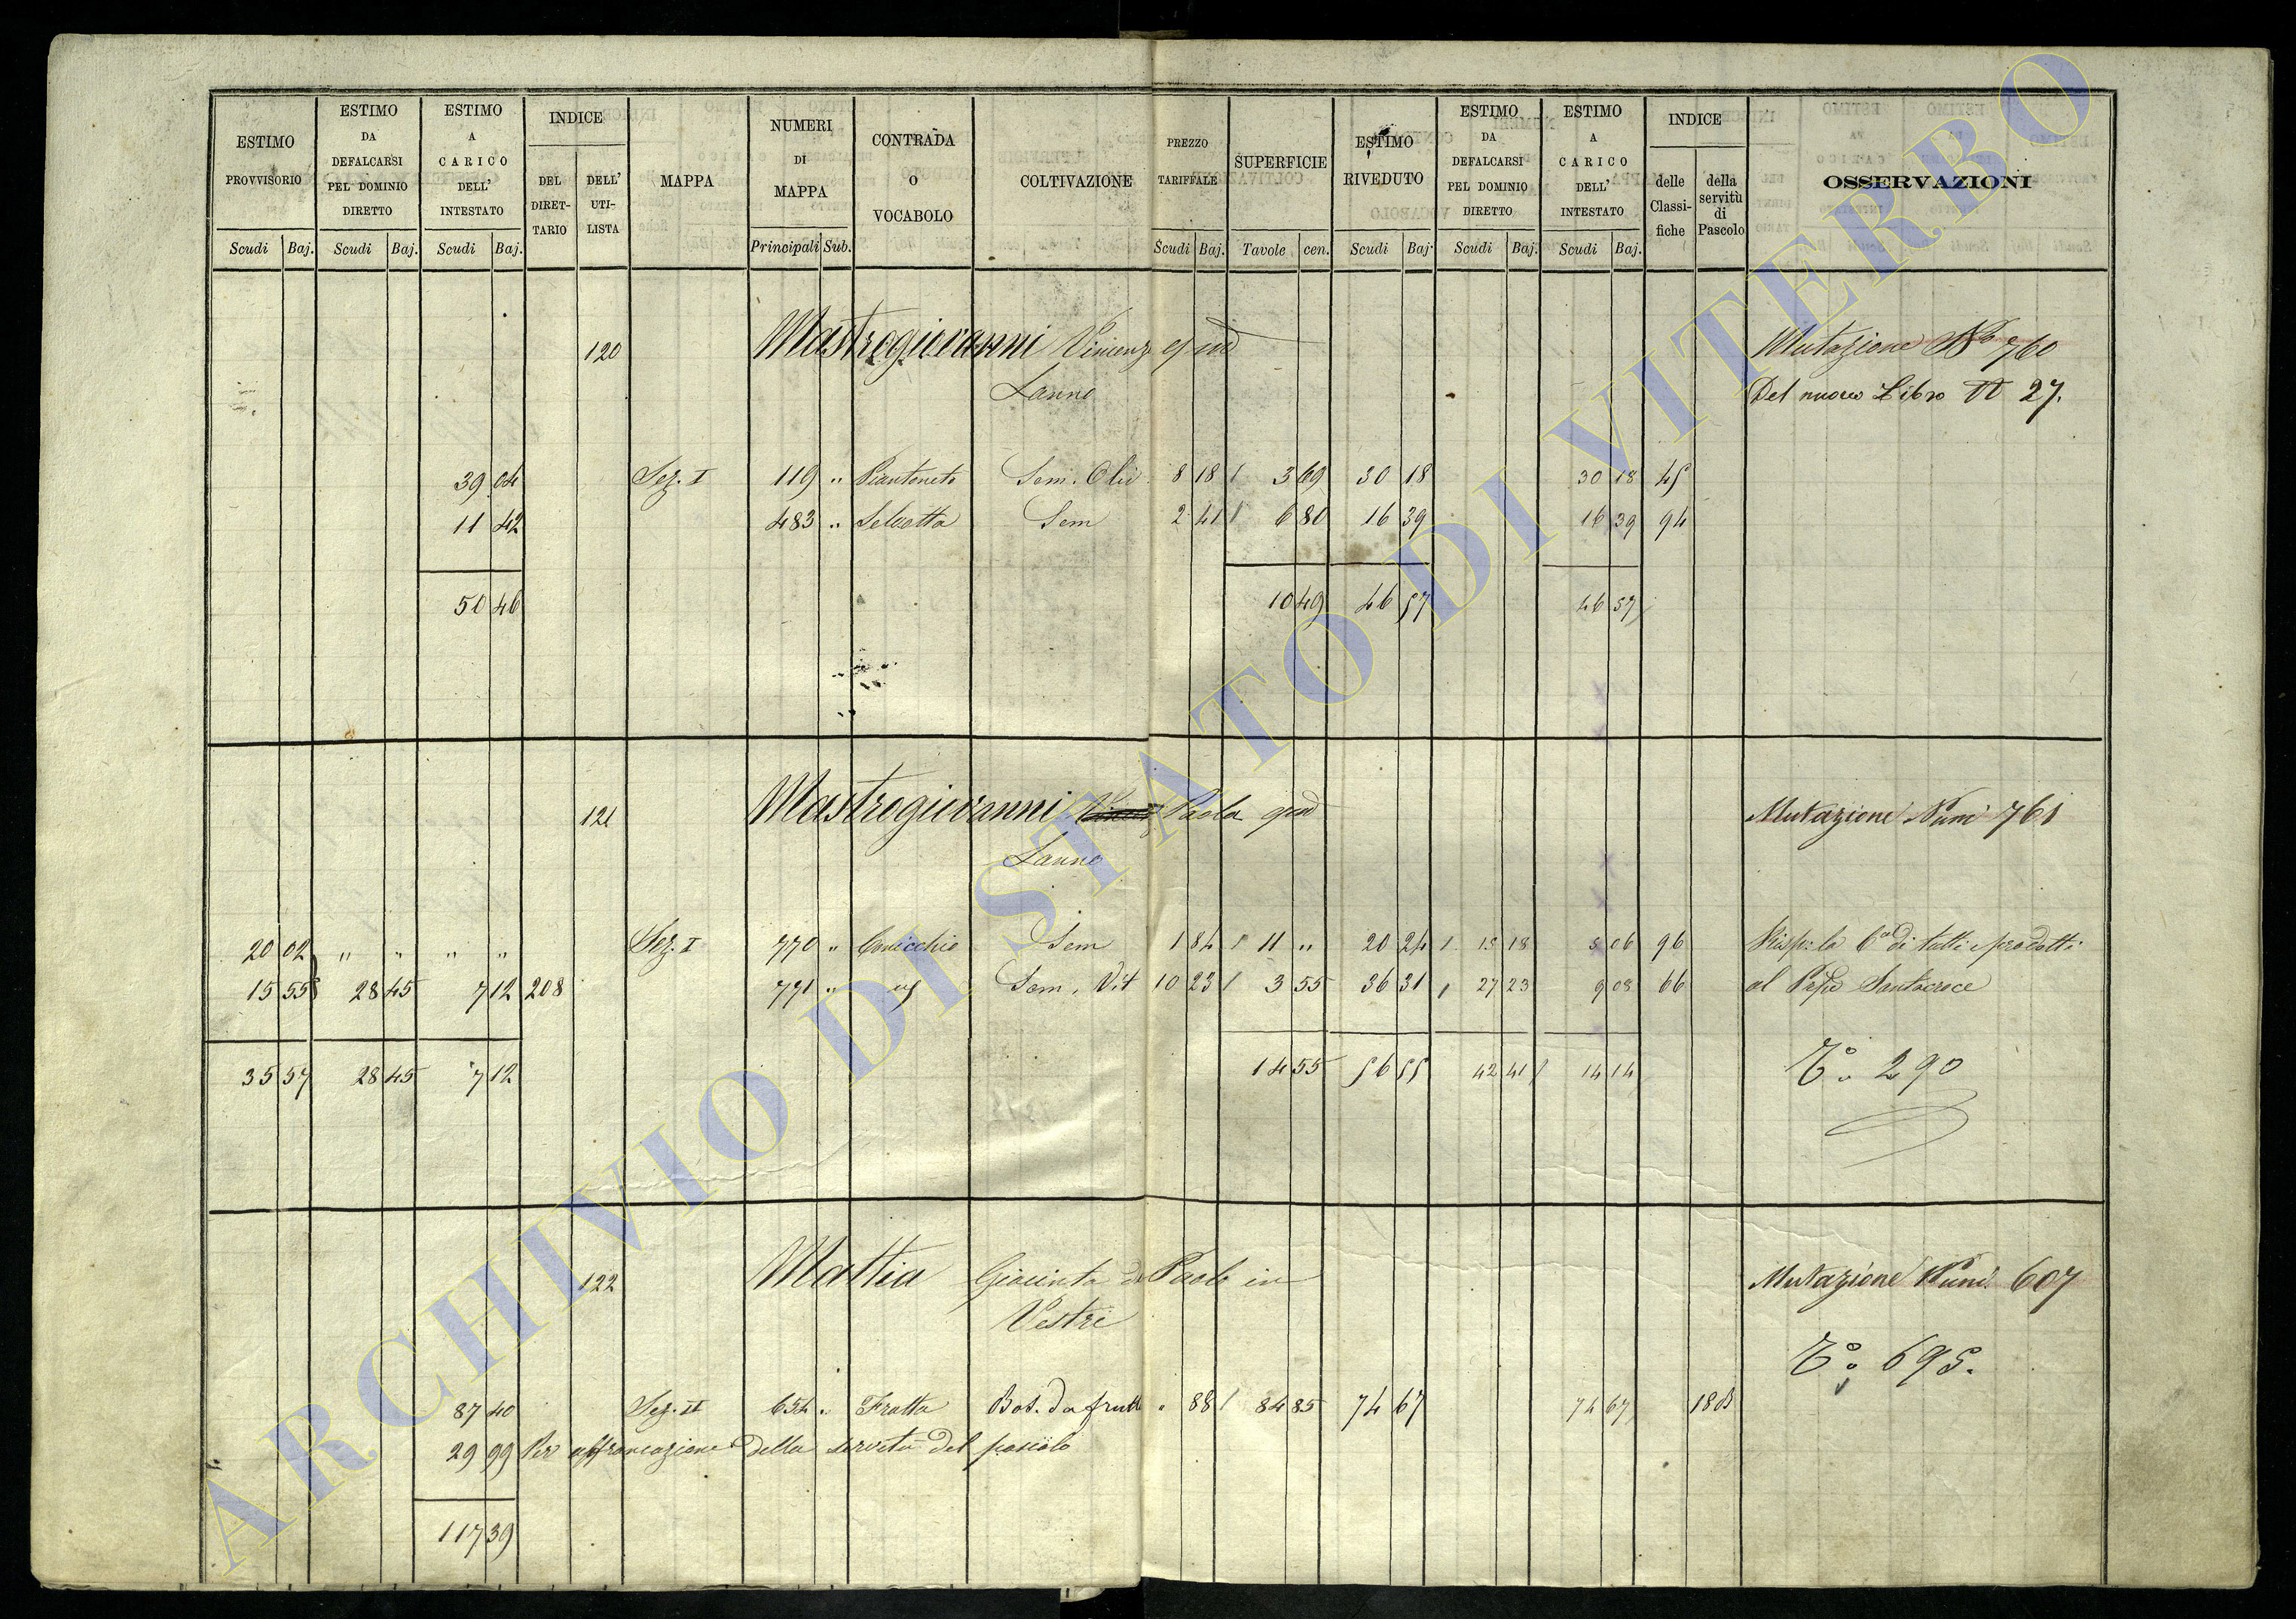 ESTIMO PROVVISORIO | ESTIMO DA DEFALCARSI PEL DOMINIO DIRETTO | ESTIMO A CARICO DELL' INTESTATO | INDICE | MAPPA | NUMERI DI MAPPA | CONTRADA O VOCABOLO | COLTIVAZIONE | PREZZO TARIFFALE | SUPERFICIE | ESTIMO RIVEDUTO | ESTIMO DA DEFALCARSI PEL DOMINIO DIRETTO | ESTIMO A CARICO DELL' INTESTATO | INDICE | OSSERVAZIONI
DEL DIRETTARIO | DELL' UTILISTA | delle Classifiche | della servitù di Pascolo
Scudi Baj. | Scudi Baj. | Scudi Baj. | Principali Sub. | Scudi Baj. | Tavole cen. | Scudi Baj. | Scudi Baj. | Scudi Baj.
120 Mastrogiovanni Vincenz qnd Mutazione No 760
Sanno Del nuovo Libro N 27.
39 04 Sez. I 119 " Piantoneto Sem. Oliv 8 18 3 69 30 18 30 18 45
11 42 483 " Selvotta Sem 2 41 6 80 16 39 16 39 94
50 46 10 49 46 57 46 57
121 Mastrogiovanni Paola qnd Mutazione Num 761
Sanno
20 02 " " " " Sez. I 770 " Conicchio Sem 1 84 11 " 20 24 15 18 5 06 96 Risp: la di tutti prodotti
15 55 28 45 7 12 208 771 " Sem. Vit 10 23 3 55 36 31 27 23 9 08 66 al Santacroce
35 57 28 45 7 12 14 55 56 55 42 41 14 14 To. 290
122 Mattia Giacinta di Paolo in Mutazione Num. 607
Vestri
To. 695.
87 40 Sez. II 654 " Fratta Bos. da frutt " 88 84 85 74 67 74 67
29 99 Per affrancazione della servitù del pascolo
117 39
ARCHIVIO DI STATO DI VITERBO